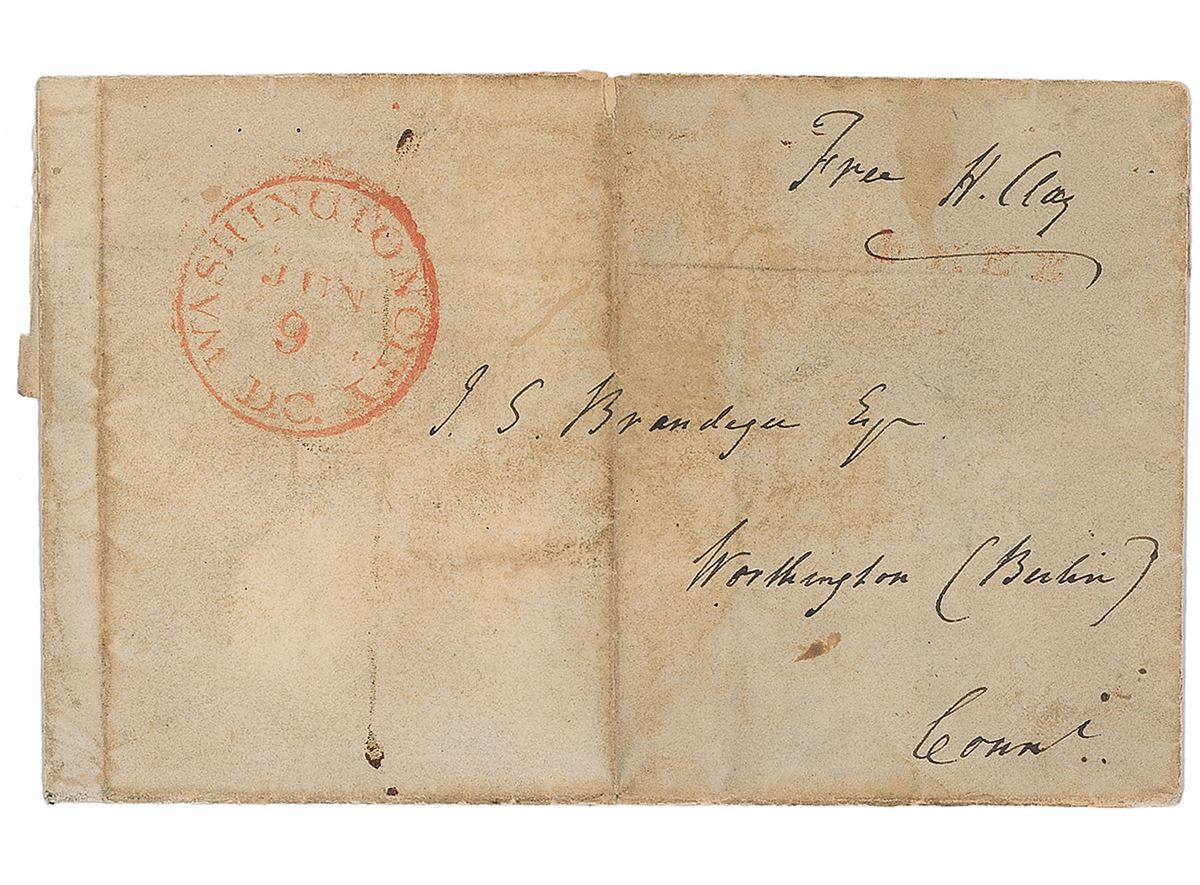 WASHINGTON CITY D.C.
JUN
9
Free H. Clay
FREE
J. S. Brandegee Esqr
Worthington (Berlin)
Connt.